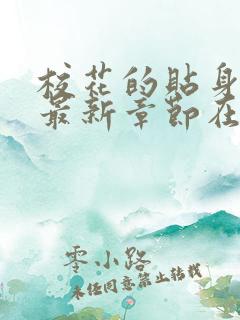 校花的贴身
最新章节在
零小路
未经同意禁止转载